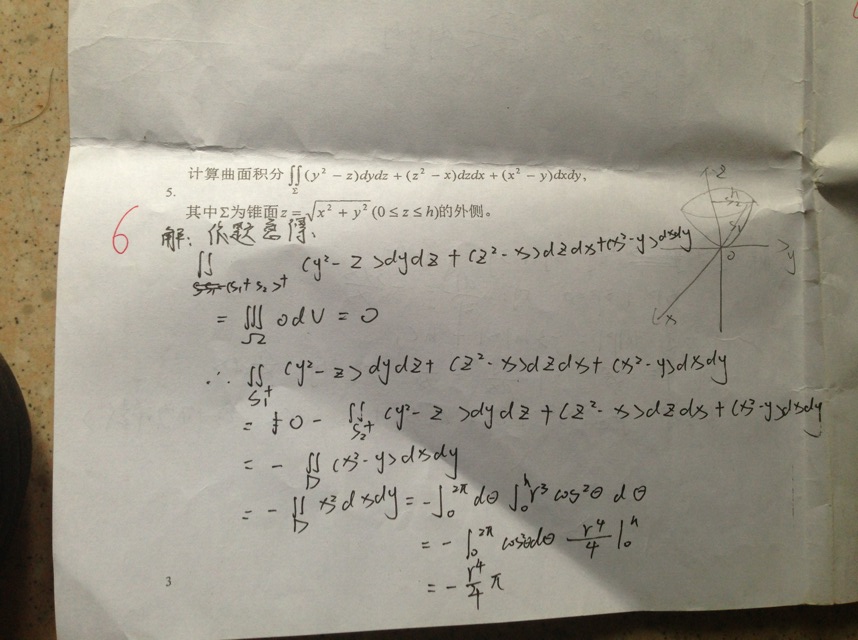 计算曲面积分∬_Σ(y² − z)dydz + (z² − x)dzdx + (x² − y)dxdy,
5.
其中Σ为锥面z = √(x² + y²) (0 ≤ z ≤ h)的外侧。
6
解: 依题意得:
∬_(S₁+S₂)⁺ (y² − z)dydz + (z² − x)dzdx + (x² − y)dxdy
= ∭_Ω 0dV = 0
∴ ∬_S₁⁺ (y² − z)dydz + (z² − x)dzdx + (x² − y)dxdy
= 0 − ∬_S₂⁺ (y² − z)dydz + (z² − x)dzdx + (x² − y)dxdy
= − ∬_D (x² − y)dxdy
= − ∬_D x²dxdy = −∫₀^2π dθ ∫₀^h r³ cos²θ dθ
= − ∫₀^2π cos²θdθ r⁴/4 |₀^h
= − r⁴/4 π
z
h
S₂
S₁
0
y
x
3